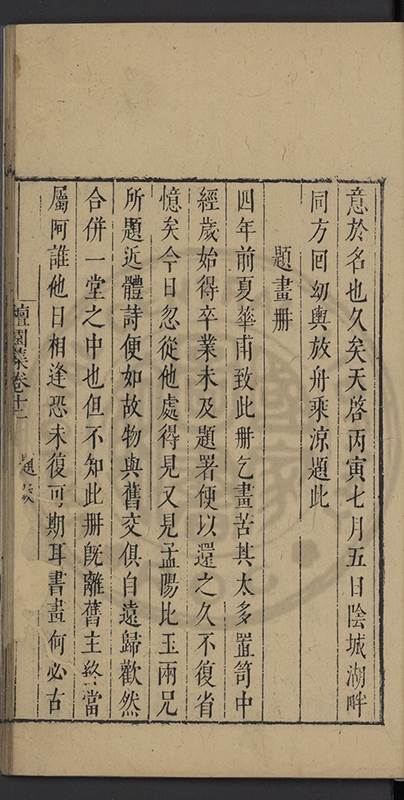 意於名也久矣天啓丙寅七月五日陰城湖畔
同方回幼輿放舟乘涼題此
題畫册
四年前夏華甫致此册乞畫苦其太多置笥中
經歲始得卒業未及題署便以還之久不復省
憶矣今日忽從他處得見又見孟陽比玉兩兄
所題近體詩便如故物與舊交俱自遠歸歡然
合併一堂之中也但不知此册旣離舊主終當
屬阿誰他日相逢恐未復可期耳書畫何必古
檀園集卷十二 題跋